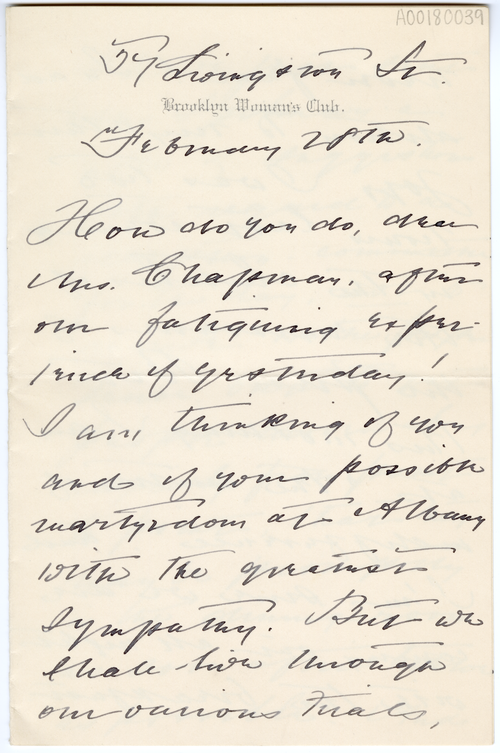 A00180039
57 Livingston St.
Brooklyn Woman's Club.
February 28th.
How do you do, dear
Mrs. Chapman, after
our fatiguing exper-
ience of yesterday!
I am thinking of you
and of your possible
martyrdom at Albany
with the greatest
sympathy. But we
shall live through
our various trials,